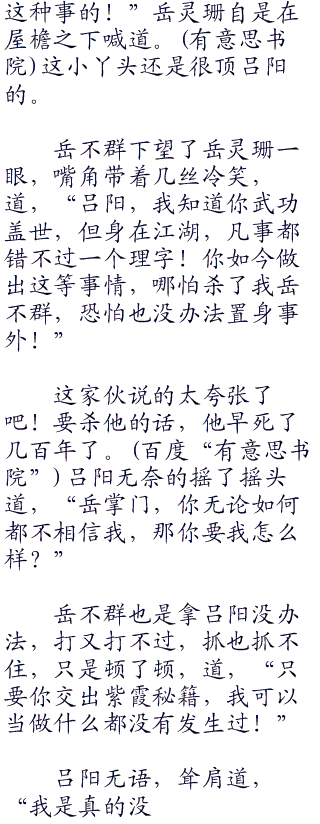 这种事的！”岳灵珊自是在
屋檐之下喊道。(有意思书
院)这小丫头还是很顶吕阳
的。
岳不群下望了岳灵珊一
眼，嘴角带着几丝冷笑，
道，“吕阳，我知道你武功
盖世，但身在江湖，凡事都
错不过一个理字！你如今做
出这等事情，哪怕杀了我岳
不群，恐怕也没办法置身事
外！”
这家伙说的太夸张了
吧！要杀他的话，他早死了
几百年了。(百度“有意思书
院”)吕阳无奈的摇了摇头
道，“岳掌门，你无论如何
都不相信我，那你要我怎么
样？”
岳不群也是拿吕阳没办
法，打又打不过，抓也抓不
住，只是顿了顿，道，“只
要你交出紫霞秘籍，我可以
当做什么都没有发生过！”
吕阳无语，耸肩道，
“我是真的没